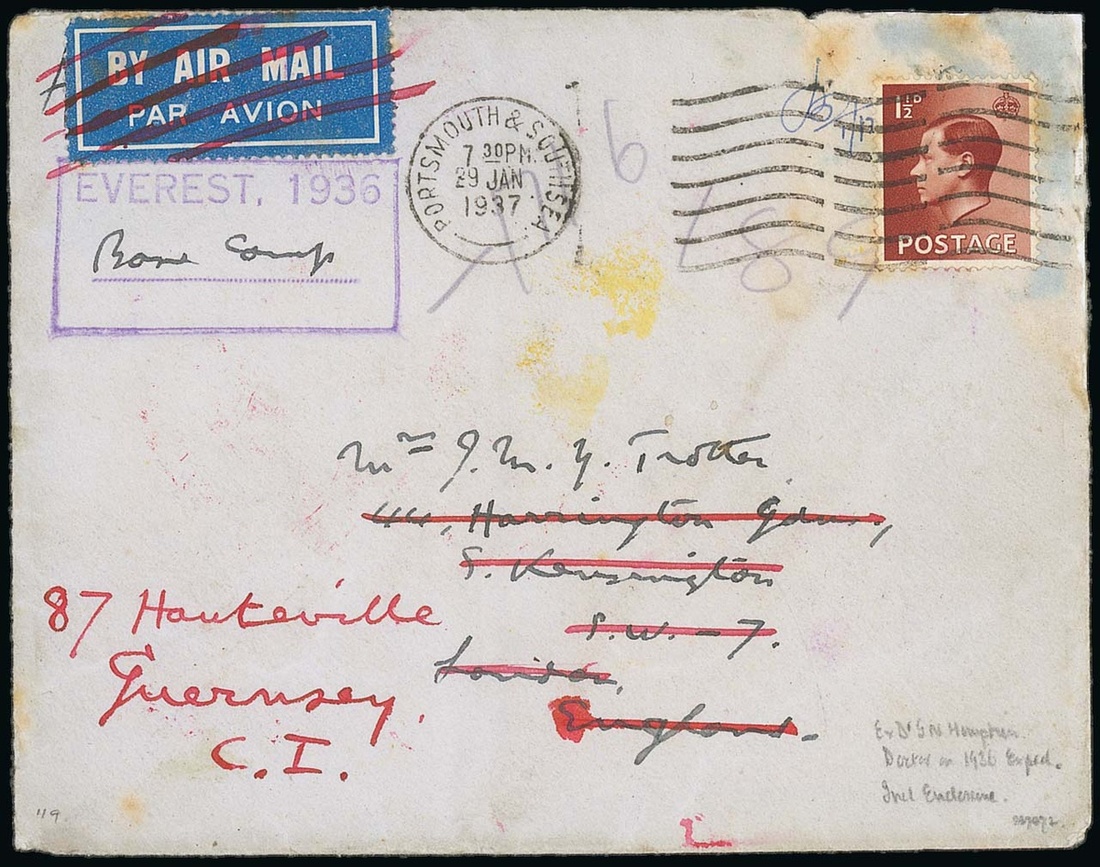 BY AIR MAIL
PAR AVION
EVEREST, 1936
Base Camp
PORTSMOUTH & SOUTHSEA
7 30PM
29 JAN
1937
1½D
POSTAGE
Mrs J. M. Y. Trotter
44, Harrington Gdns,
S. Kensington
S.W.-7.
London,
England.
87 Hauteville
Guernsey,
C.I.
Ex Dr G N Humphreys
Doctor on 1936 Exped.
Incl Enclosure.
119